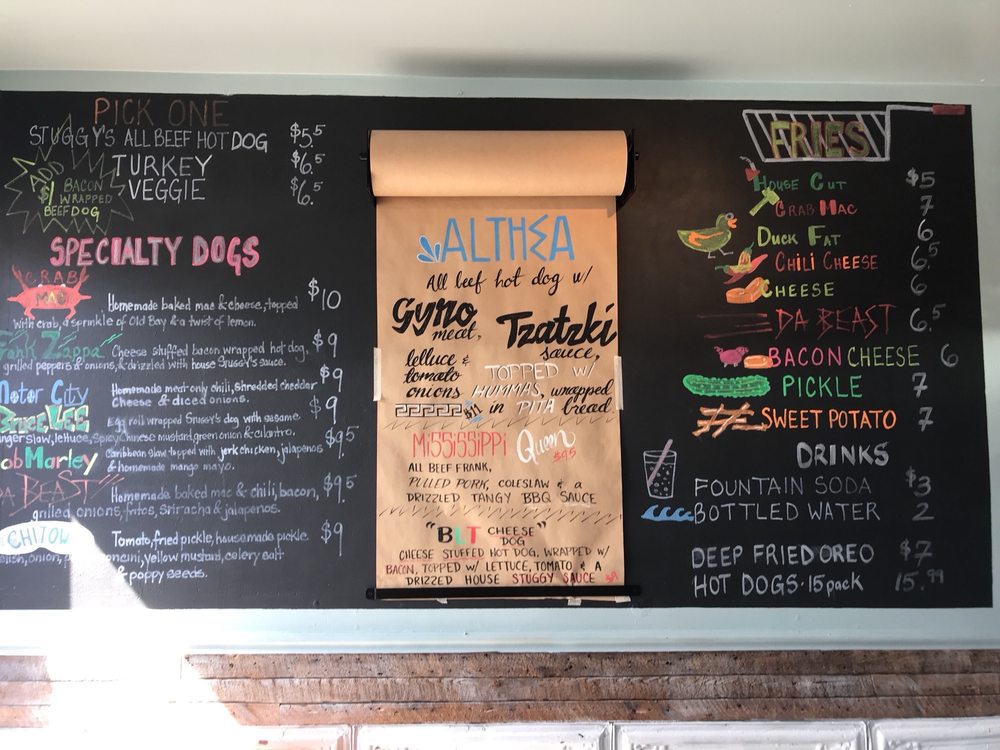 PICK ONE
STUGGY'S ALL BEEF HOT DOG $5.5
TURKEY $6.5
VEGGIE $6.5
ADD
$1 BACON
WRAPPED
BEEF DOG
SPECIALTY DOGS
CRAB
MAC
Homemade baked mac & cheese, topped $10
with crab, a sprinkle of Old Bay & a twist of lemon.
Zappa Cheese stuffed bacon wrapped hot dog, $9
grilled peppers & onions, & drizzled with house Stuggy's sauce.
Motor City Homemade meat only chili, shredded cheddar $9
Cheese & diced onions.
Bruce Lee Egg roll wrapped Stuggy's dog with sesame $9
ginger slaw, lettuce, spicy Chinese mustard, green onion & cilantro.
ob Marley Caribbean slaw topped with jerk chicken, jalapenos $9.5
& homemade mango mayo.
DA BEAST Homemade baked mac & chili, bacon, $9.5
grilled onions, fritos, Sriracha & jalapenos.
CHITOW Tomato, fried pickle, housemade pickle $9
relish, onion, yellow mustard, celery salt
& poppy seeds.
ALTHEA
All beef hot dog w/
Gyro
meat,
Tzatzki
sauce,
lettuce &
tomato
onions
TOPPED W/
HUMMAS, wrapped
$11 in PITA bread
MISSISSIPPI Queen
$9.5
ALL BEEF FRANK,
PULLED PORK, COLESLAW & A
DRIZZLED TANGY BBQ SAUCE
"BLT CHEESE"
DOG
CHEESE STUFFED HOT DOG, WRAPPED W/
BACON, TOPPED W/ LETTUCE, TOMATO & A
DRIZZED HOUSE STUGGY SAUCE
FRIES
HOUSE CUT $5
CRAB MAC 7
DUCK FAT 6
CHILI CHEESE 6.5
CHEESE 6
DA BEAST 6.5
BACON CHEESE 6
PICKLE 7
SWEET POTATO 7
DRINKS
FOUNTAIN SODA $3
BOTTLED WATER 2
DEEP FRIED OREO $7
HOT DOGS · 15 pack 15.99